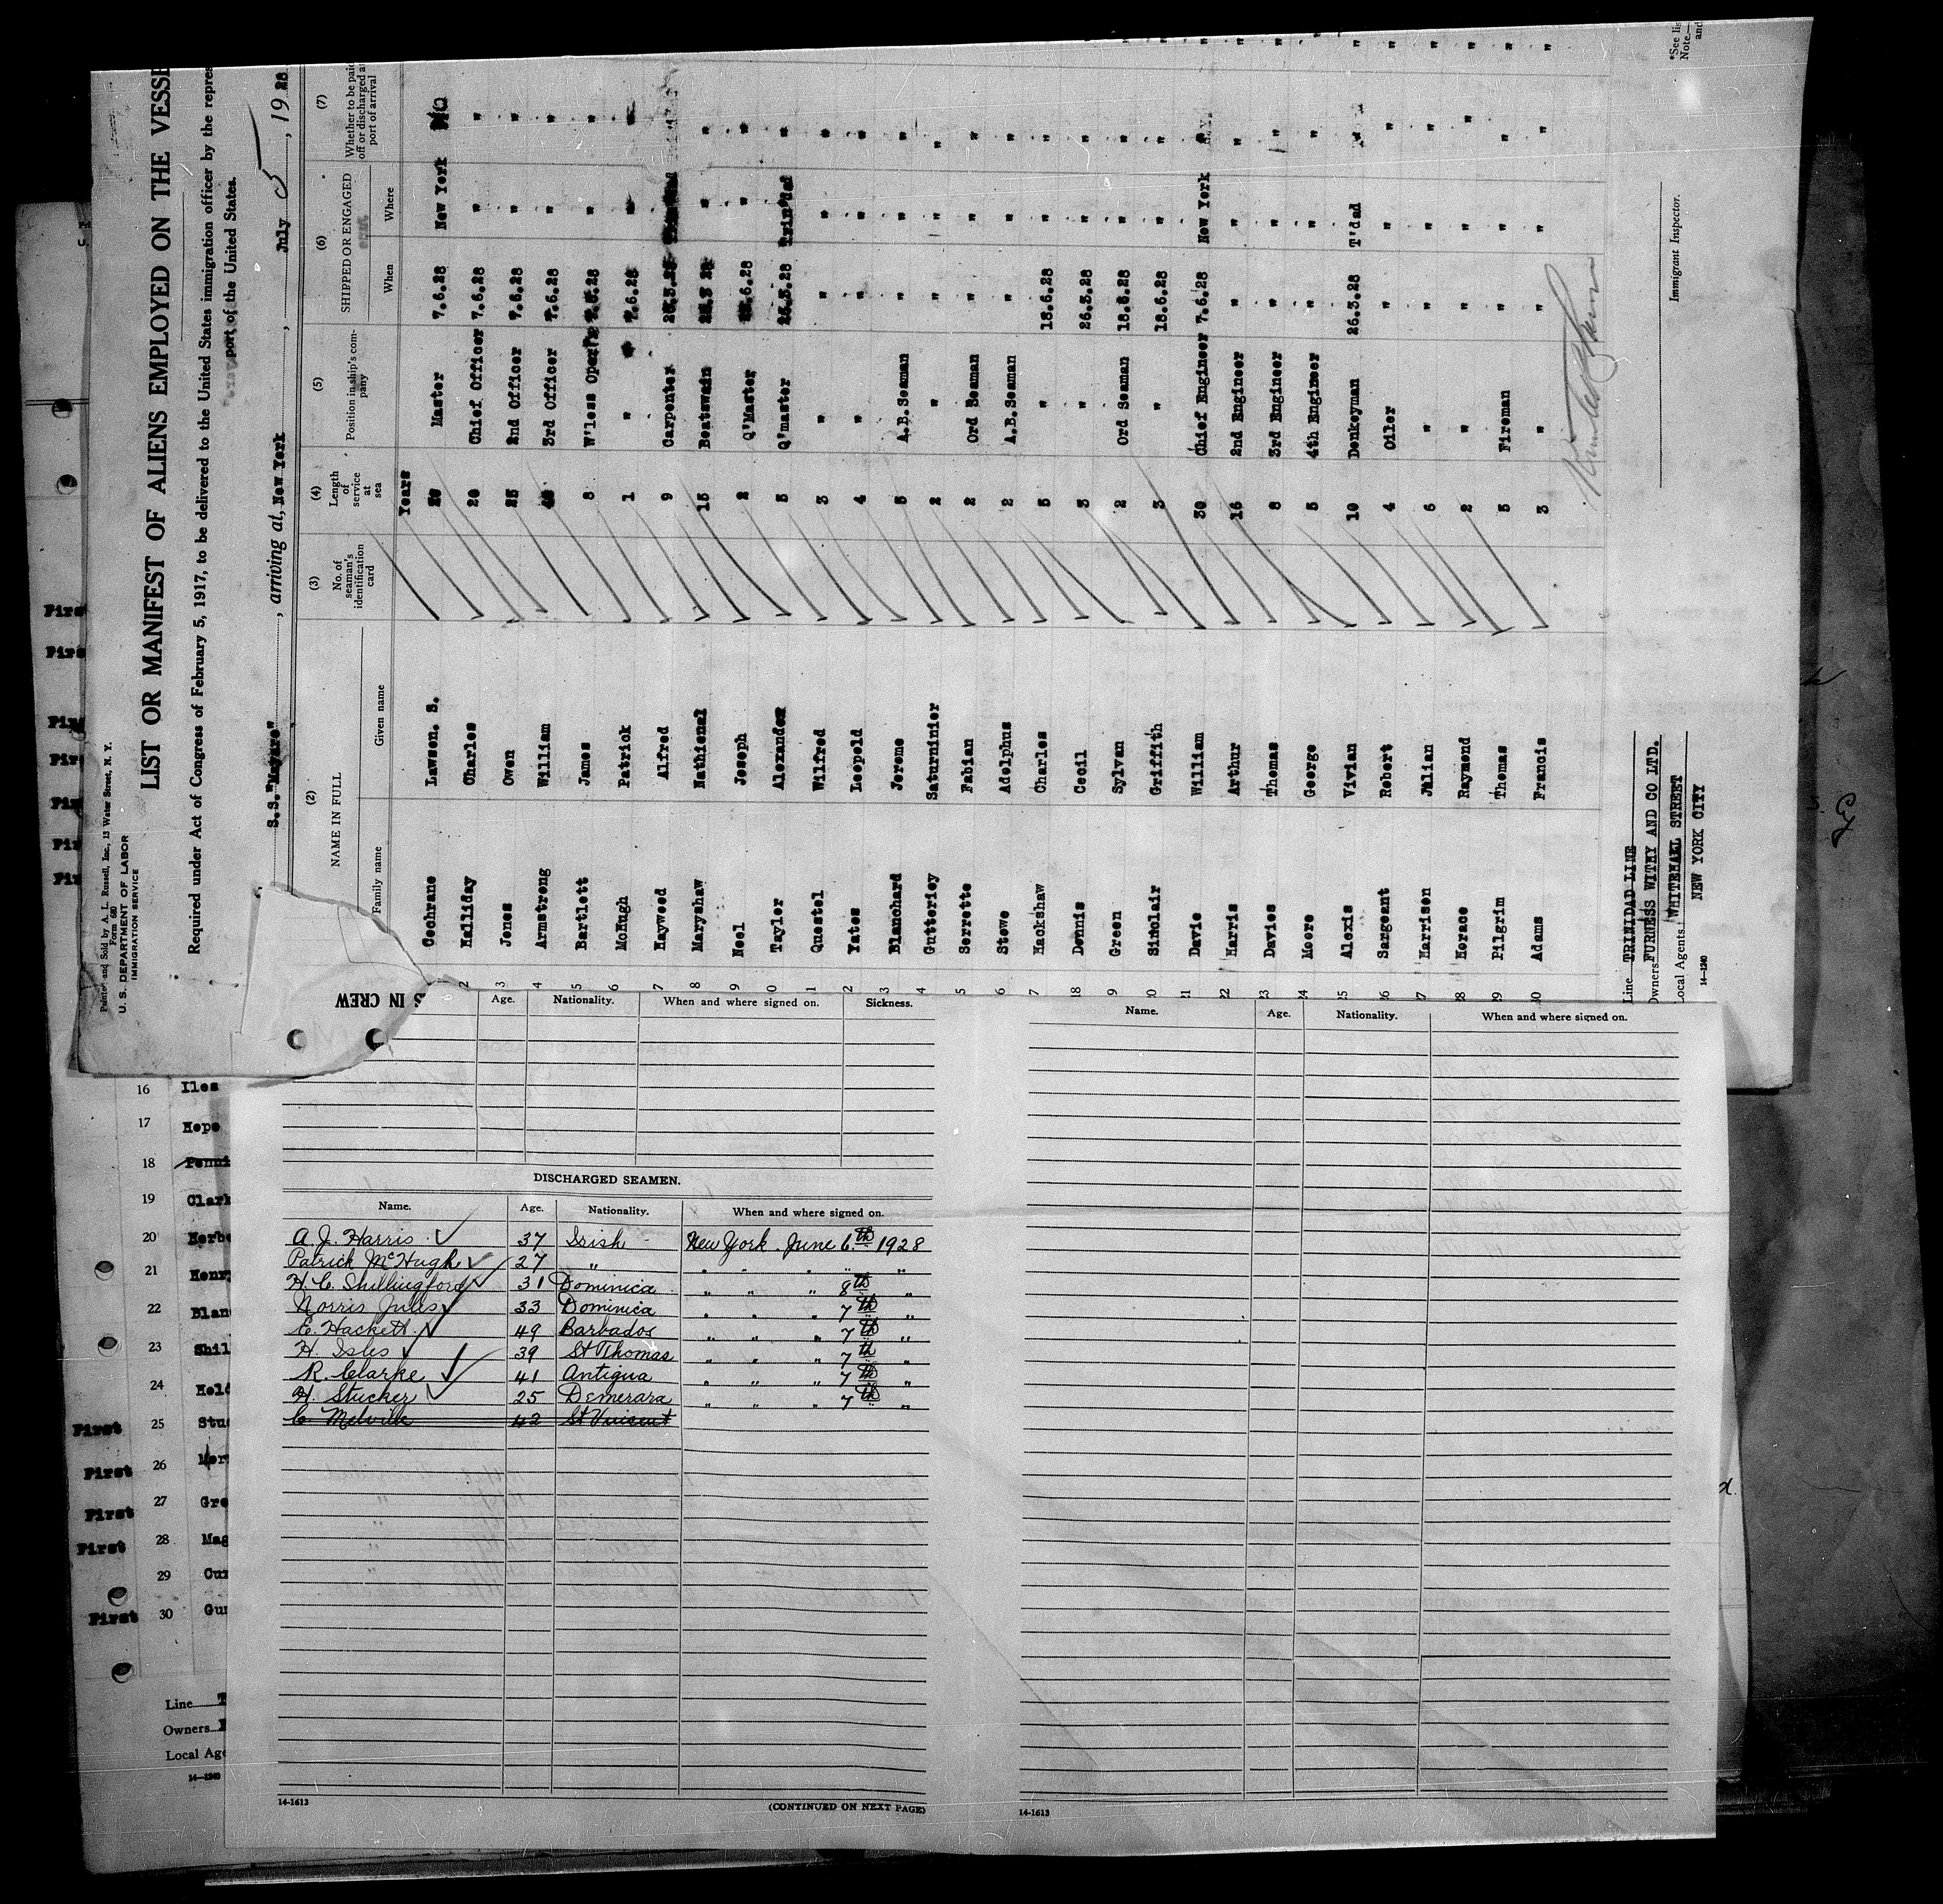 Printed and Sold by A. L. Russell, Inc., 13 Water Street, N. Y.
Form 680
U. S. DEPARTMENT OF LABOR
IMMIGRATION SERVICE
LIST OR MANIFEST OF ALIENS EMPLOYED ON THE VESSE
Required under Act of Congress of February 5, 1917, to be delivered to the United States immigration officer by the repres
port of the United States.
S.S. "Mayaro", arriving at, New York, July 5, 1928
(2) (3) (4) (5) (6) (7)
NAME IN FULL
Family name Given name
No. of seaman's identification card
Length of service at sea
Position in ship's company
SHIPPED OR ENGAGED
When Where
Whether to be paid off or discharged at port of arrival
Years
Cochrane Lawson. S. Master 7.6.28 New York
2 Halliday Charles 20 Chief Officer 7.6.28 "
3 Jones Owen 25 2nd Officer 7.6.28 " "
4 Armstrong William 3rd Officer 7.6.28 " "
5 Bartlett James 8 W'less " "
6 McHugh Patrick 1 " 7.6.28 "
7 Hayweed Alfred 9 Carpenter
8 Maryshaw Nathienal 15 Boatswain " "
9 Neel Joseph 2 Q'Master " "
0 Tayler Alexander 5 Q'master 26.3.28 Trin'dad "
1 Questel Wilfred 3 " " " "
2 Yates Leopold 4 " " " "
3 Blanchard Jerome 5 A.B. Seaman " " "
4 Gutteriey Saturninier 2 " " " "
5 Serrette Fabian 2 Ord Seaman " " "
6 Stowe Adolphus 2 A.B. Seaman " " "
7 Hackshaw Charles 5 " 18.6.28 " "
18 Dennis Cecil 3 " 26.3.28 " "
9 Green Sylvan 2 Ord Seaman 18.6.28 " "
20 Sinclair Griffith 3 " 18.6.28 " "
21 Davie William 30 Chief Engineer 7.6.28 New York
22 Harris Arthur 16 2nd Engineer " " "
23 Davies Thomas 8 3rd Engineer " " "
24 Moore George 5 4th Engineer " " "
25 Alexis Vivian 10 Donkeyman 26.3.28 T'dad
26 Sargeant Robert 4 Oiler " " "
27 Harrison Julian 6 " " " "
28 Horace Raymond 2 " " " "
29 Pilgrim Thomas 5 Fireman " " "
30 Adams Francis 3 " " " "
Immigrant Inspector.
*See lis
Note.—
and
Line TRINIDAD LINE
Owners FURNESS WITHY AND CO LTD.
Local Agents WHITEHALL STREET
NEW YORK CITY
14—1240
S IN CREW
Age. Nationality. When and where signed on. Sickness.
DISCHARGED SEAMEN.
Name. Age. Nationality. When and where signed on.
A. J. Harris 37 Irish New York June 6th 1928
Patrick McHugh 27 " " " " " "
H. C. Shillingford 31 Dominica " " " 8th "
Norris Jules 33 Dominica " " " 7th "
E. Hackett 49 Barbados " " " 7th "
H. Isles 39 St Thomas " " " 7th "
R. Clarke 41 Antigua " " " 7th "
H. Stucker 25 Demerara " " " 7th "
C. Melville 42 St Vincent
14-1613
(CONTINUED ON NEXT PAGE)
Name. Age. Nationality. When and where signed on.
14-1613
16 Iles
17 Hope
18 Penni
19 Clark
20 Herbe
21 Henry
22 Blan
23 Shil
24 Held
First 25 Stu
First 26 Mor
First 27 Gre
First 28 Mag
29 Cur
First 30 Gur
Line
Owners
Local Age
14—1240